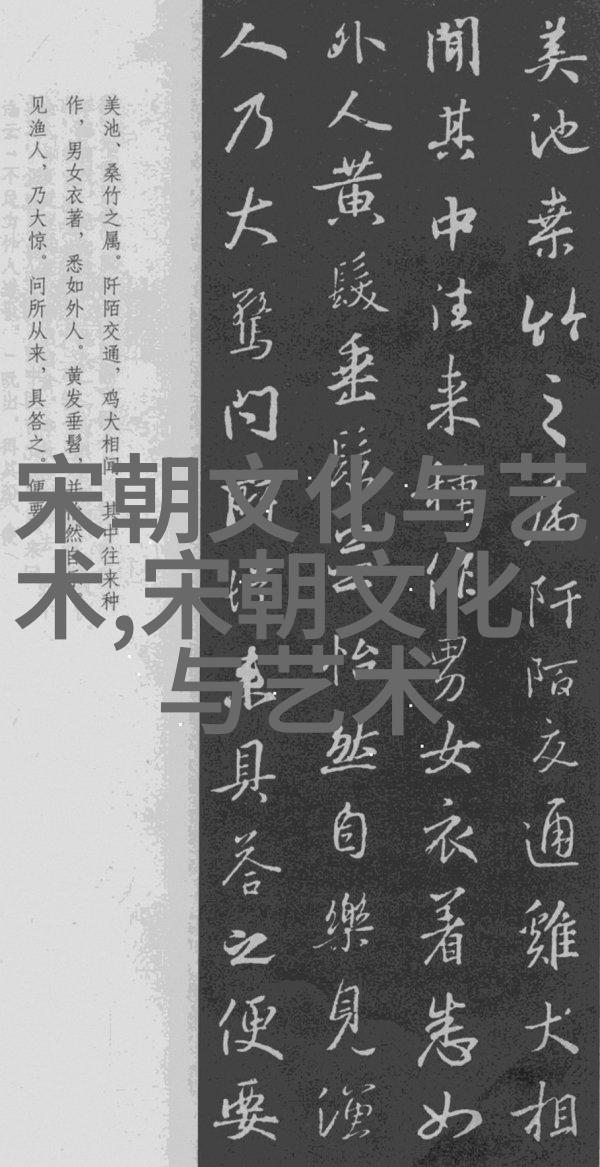 美池桒竹之属阡陌交通雞犬相
聞其中往来種作男女衣着悉如
外人黄髮垂髫並怡然自樂見漁
人乃大驚問所從来具答之便要
美池、桑竹之属。阡陌交通，鸡犬相闻。其中往来种
作，男女衣著，悉如外人。黄发垂髫，并怡然自
见渔人，乃大惊。问所从来，具答之。便要
宋朝文化与艺
术,宋朝文化
与艺术